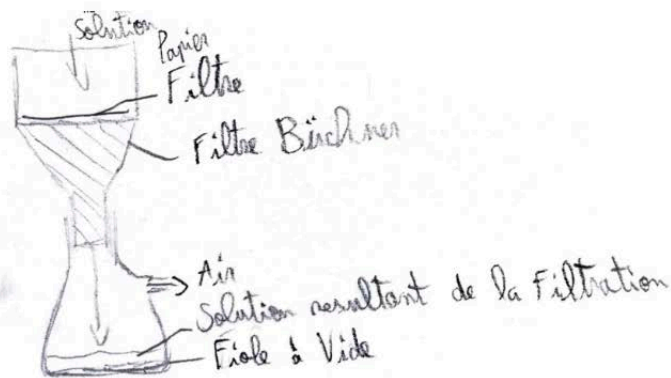 Solution
Papier
Filtre
Filtre Büchner
Air
Solution resultant de la Filtration
Fiole à Vide